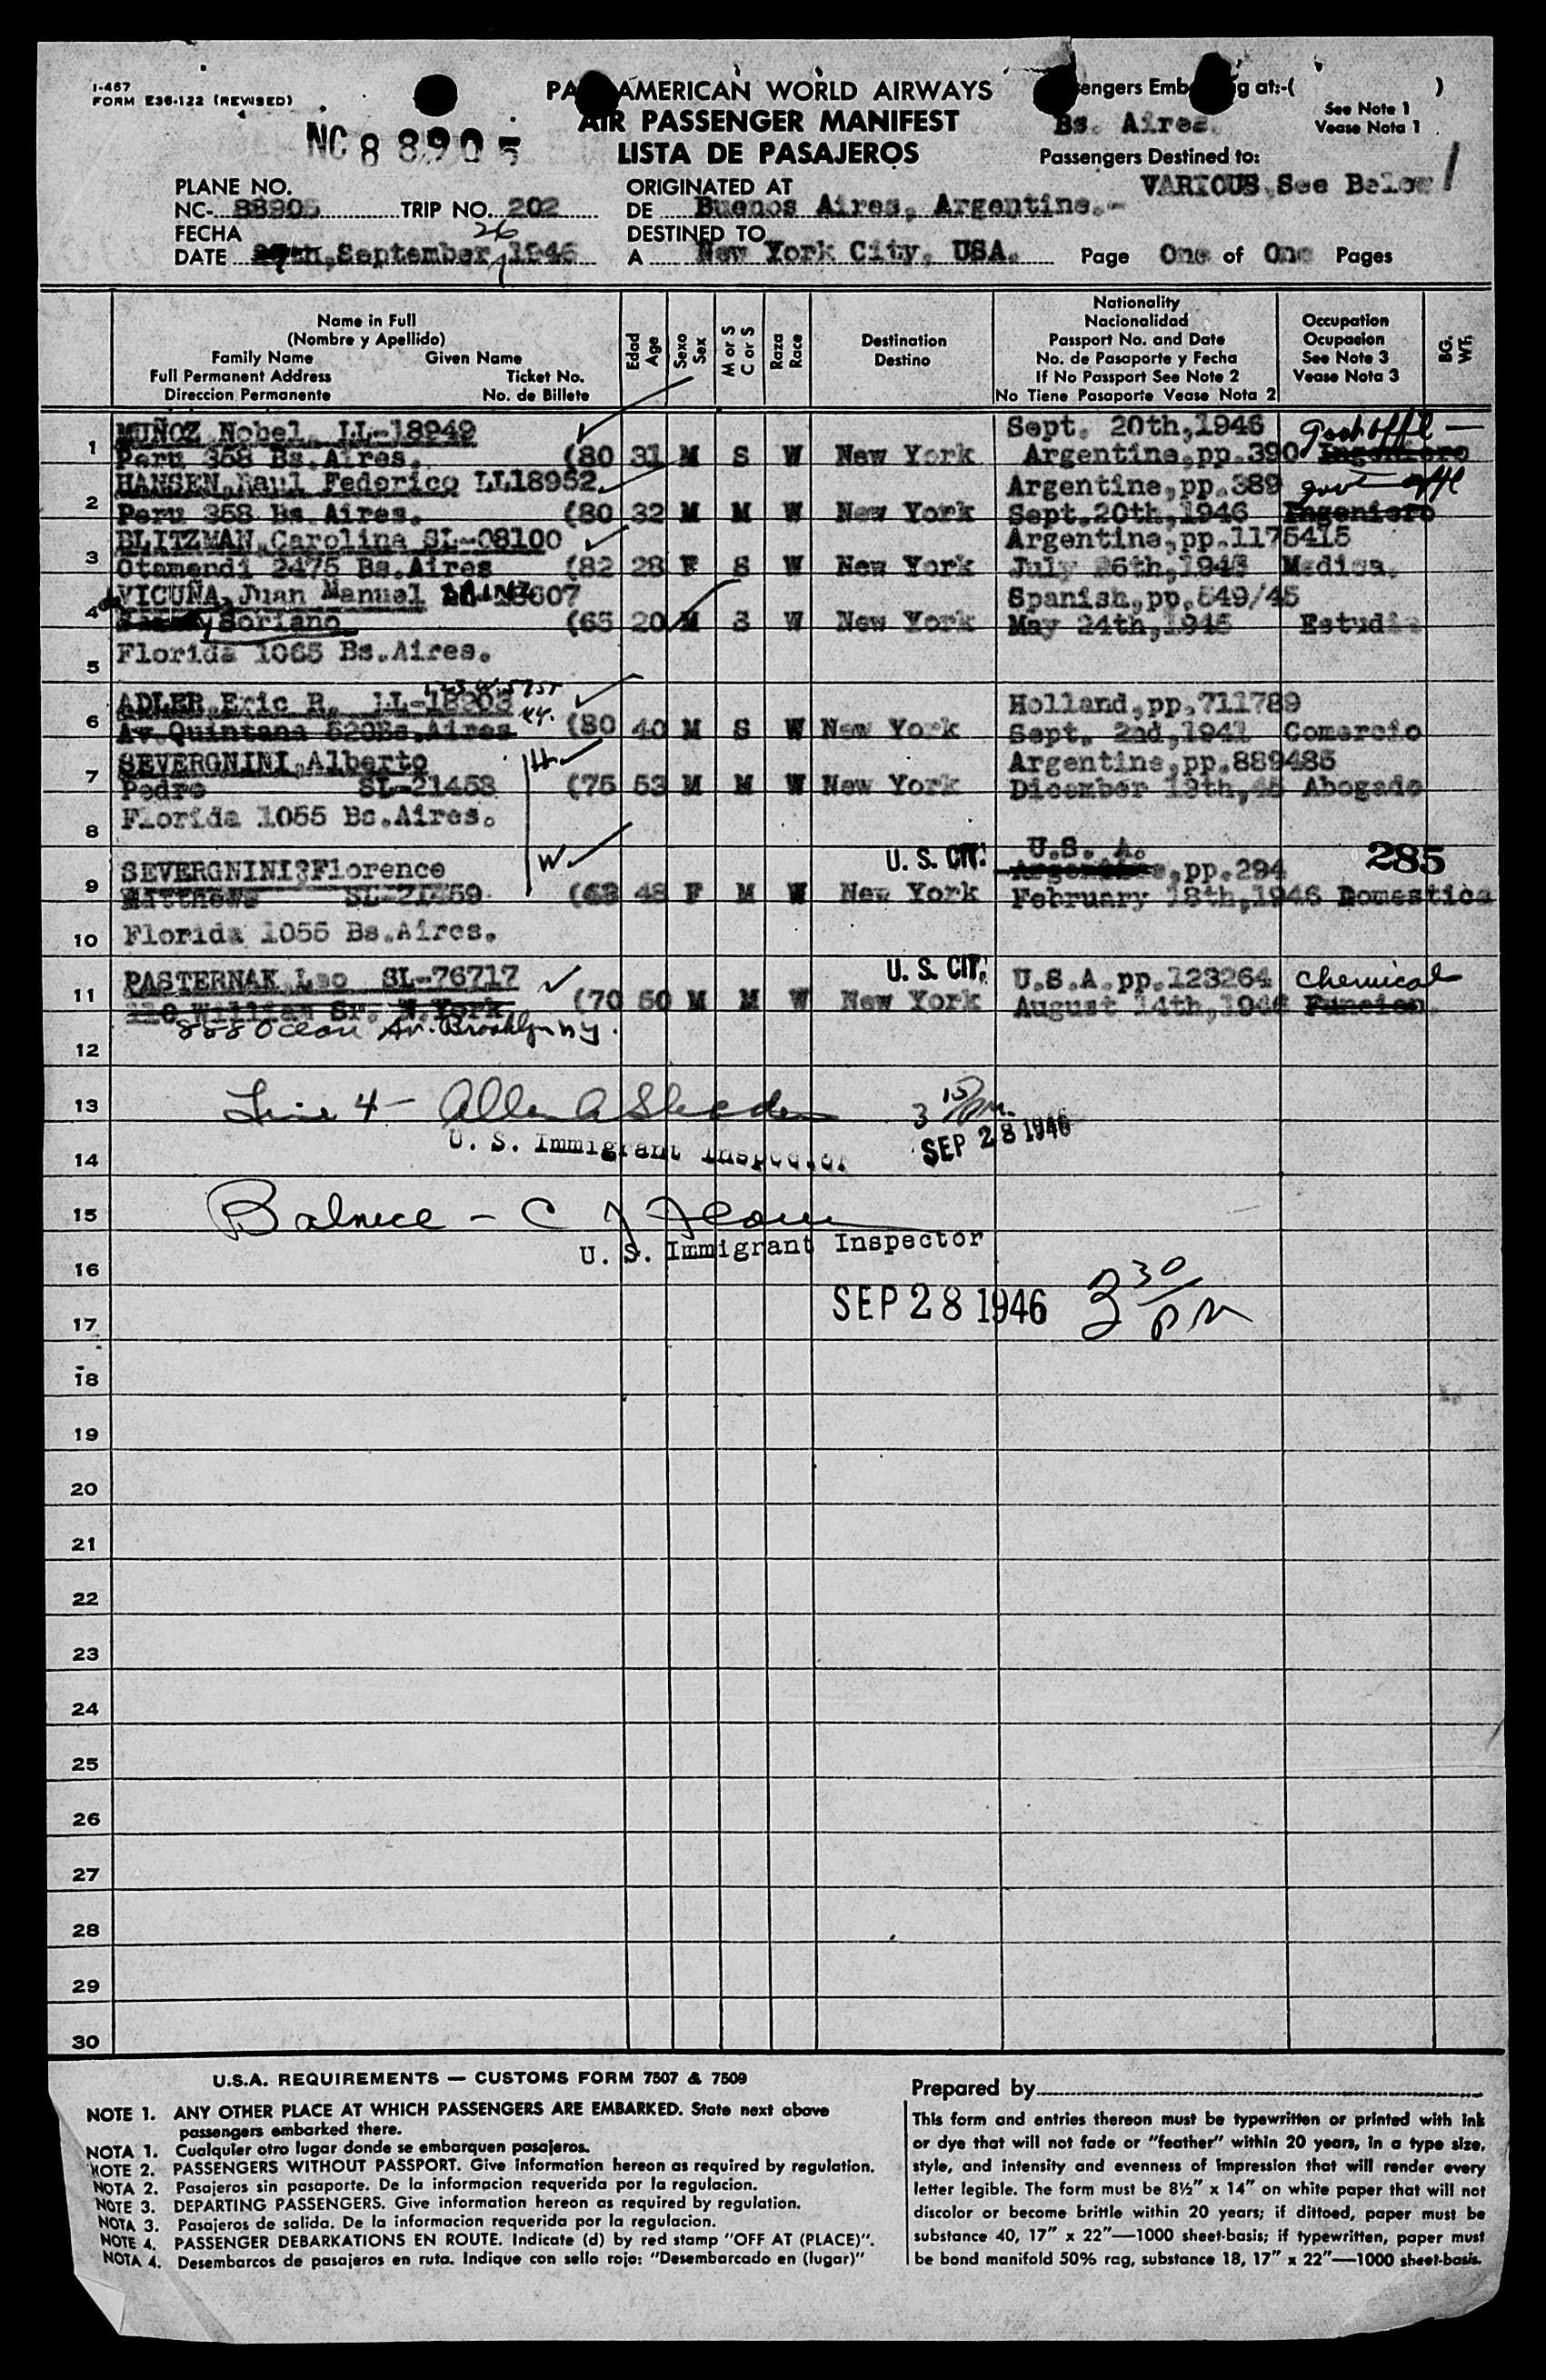 I-467
FORM E36-122 (REVISED)
NC 88905
AMERICAN WORLD AIRWAYS
AIR PASSENGER MANIFEST
LISTA DE PASAJEROS
at:-( )
See Note 1
Vease Nota 1
Bs. Aires.
Passengers Destined to:
VARIOUS, See Below
PLANE NO.
NC- 88905 TRIP NO. 202
ORIGINATED AT
DE Buenos Aires, Argentine.-
FECHA 26
DATE September, 1946
DESTINED TO
A New York City, USA.
Page One of One Pages
Name in Full
(Nombre y Apellido)
Family Name Given Name
Full Permanent Address Ticket No.
Direccion Permanente No. de Billete
Edad Age
Sexo Sex
M or S C or S
Raza Race
Destination
Destino
Nationality
Nacionalidad
Passport No. and Date
No. de Pasaporte y Fecha
If No Passport See Note 2
No Tiene Pasaporte Vease Nota 2
Occupation
Ocupacion
See Note 3
Vease Nota 3
BG. WT.
MUÑOZ, Nobel, LL-18949 Sept. 20th,1946
1 Peru 358 Bs.Aires. (80 31 M S W New York Argentine,pp.390 Ingeniero
HANSEN,Raul Federico LL18952 Argentine,pp.389 govt offl
2 Peru 358 Bs.Aires. (80 32 M M W New York Sept.20th,1946 Ingeniero
BLITZMAN,Carolina SL-08100 Argentine,pp.1175415
3 Otamendi 2475 Bs.Aires (82 28 F S W New York Medica.
VICUÑA, Juan Manuel Spanish,pp.549/45
4 Soriano (65 20 M S W New York May 24th,1945
5 Florida 1065 Bs.Aires.
ADLER,Eric R. Holland,pp.711789
6 Av.Quintana 520Bs.Aires (80 40 M S W New York Sept. 2nd,1941 Comercio
SEVERGNINI,Alberto H Argentine,pp.889485
7 Pedro SL-21458 (75 53 M M W New York Abogado
8 Florida 1055 Bs.Aires.
SEVERGNINI?Florence W U. S. CIT. U.S. A. pp.294 285
9 Matthews SL-21459 48 F M W New York February 18th,1946 Domestica
10 Florida 1055 Bs.Aires.
PASTERNAK,Leo SL-76717 U. S. CIT. U.S.A.pp.123264 Chemical
11 (70 50 M M W New York August 14th,1946
888 Ocean Av. Brooklyn ny.
12
13 Line 4 - 3 15 P.M.
U. S. Immigrant Inspector SEP 28 1946
14
15
U. S. Immigrant Inspector
16
SEP 28 1946 3 30 PM
17
18
19
20
21
22
23
24
25
26
27
28
29
30
U.S.A. REQUIREMENTS — CUSTOMS FORM 7507 & 7509
NOTE 1. ANY OTHER PLACE AT WHICH PASSENGERS ARE EMBARKED. State next above
passengers embarked there.
NOTA 1. Cualquier otro lugar donde se embarquen pasajeros.
NOTE 2. PASSENGERS WITHOUT PASSPORT. Give information hereon as required by regulation.
NOTA 2. Pasajeros sin pasaporte. De la informacion requerida por la regulacion.
NOTE 3. DEPARTING PASSENGERS. Give information hereon as required by regulation.
NOTA 3. Pasajeros de salida. De la informacion requerida por la regulacion.
NOTE 4. PASSENGER DEBARKATIONS EN ROUTE. Indicate (d) by red stamp "OFF AT (PLACE)".
NOTA 4. Desembarcos de pasajeros en ruta. Indique con sello rojo: "Desembarcado en (lugar)"
Prepared by
This form and entries thereon must be typewritten or printed with ink
or dye that will not fade or "feather" within 20 years, in a type size,
style, and intensity and evenness of impression that will render every
letter legible. The form must be 8½" x 14" on white paper that will not
discolor or become brittle within 20 years; if dittoed, paper must be
substance 40, 17" x 22"—1000 sheet-basis; if typewritten, paper must
be bond manifold 50% rag, substance 18, 17" x 22"—1000 sheet-basis.